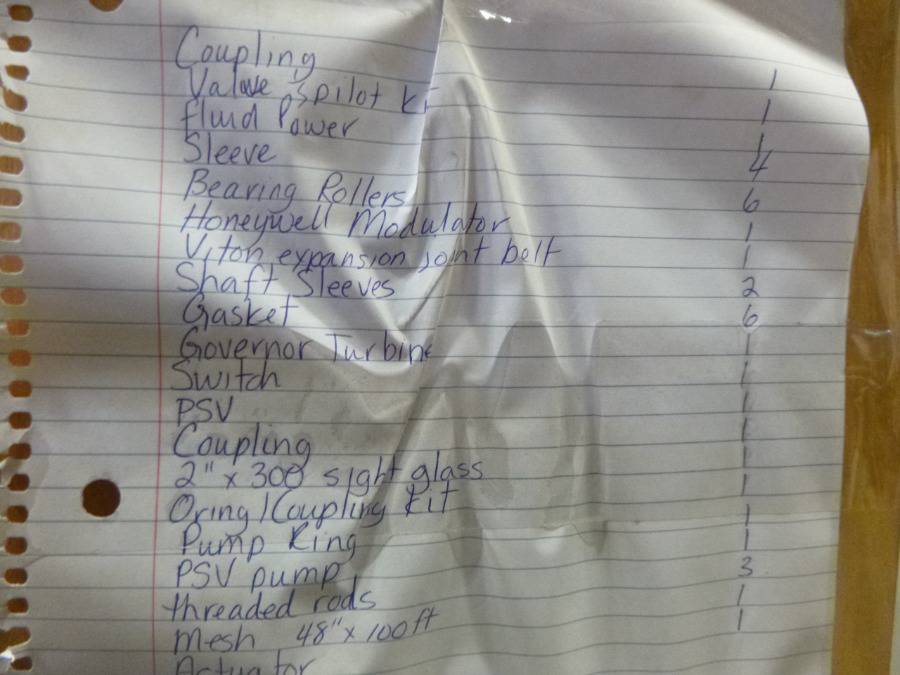 Coupling 1
Valave spilot ki 1
fluid Power 1
Sleeve 4
Bearing Rollers 6
Honeywell Modulator 1
Viton expansion joint belt 1
Shaft Sleeves 2
Gasket 6
Governor Turbine 1
Switch 1
PSV 1
Coupling 1
2" x 300 sight glass 1
Oring/Coupling Kit 1
Pump Ring 1
PSV pump 1
threaded rods 3
Mesh 48" x 100ft 1
Actuator 1